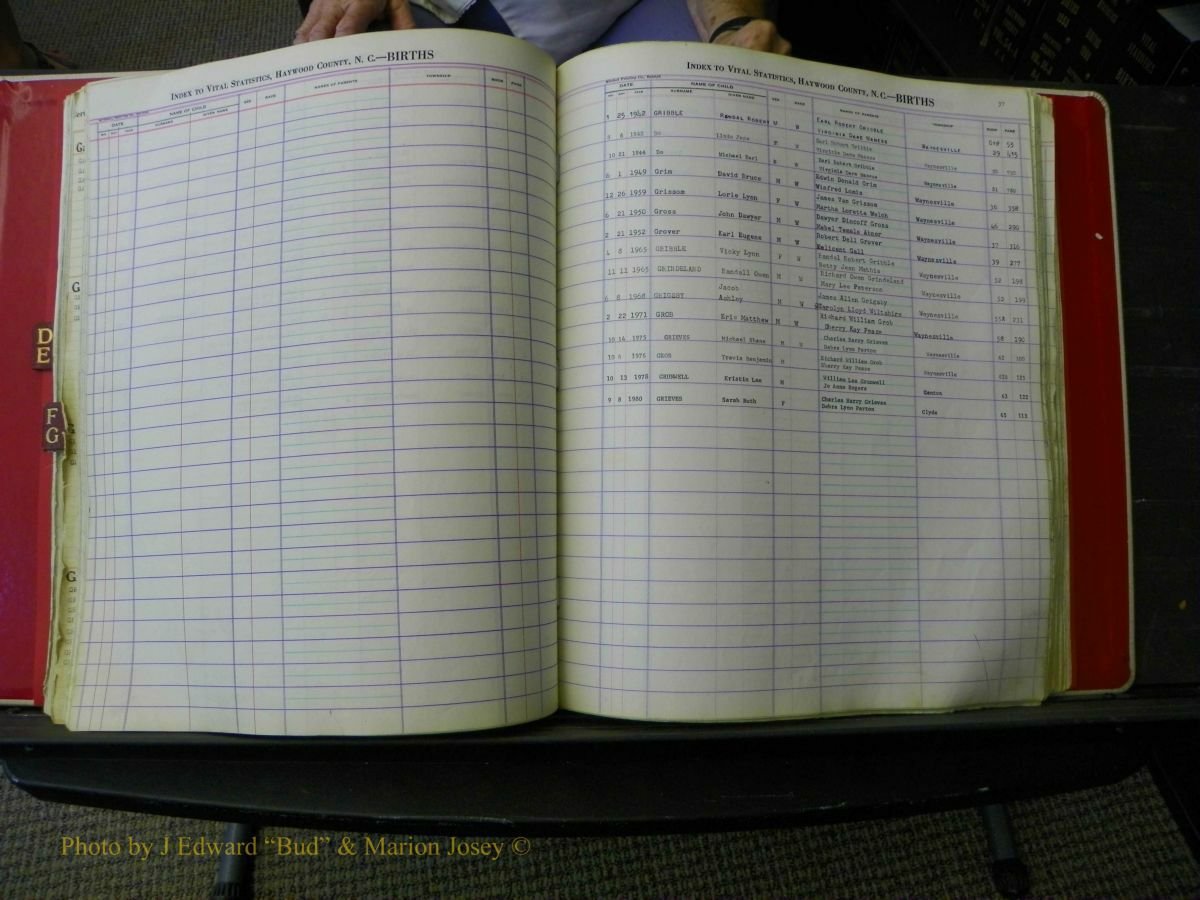 INDEX TO VITAL STATISTICS, HAYWOOD COUNTY, N. C.—BIRTHS
DATE NAME OF CHILD SEX RACE NAMES OF PARENTS TOWNSHIP BOOK PAGE
SURNAME GIVEN NAME
D
E
F
G
INDEX TO VITAL STATISTICS, HAYWOOD COUNTY, N. C.—BIRTHS
37
DATE NAME OF CHILD SEX RACE NAMES OF PARENTS TOWNSHIP BOOK PAGE
SURNAME GIVEN NAME
25 1942 GRIBBLE W EARL ROBERT GRIBBLE WAYNESVILLE 53
VIRGINIA DARE
Do F W Earl Robert Gribble Waynesville
Virginia Dare
10 21 Do Michael Earl W Earl Robert Gribble Waynesville
Virginia Dare
6 1 1949 Grim David Bruce M W Edwin Donald Grim Waynesville
Winfred Lomis
12 26 1959 Grissom Lorie Lynn F W James Van Grissom Waynesville 358
Martha Loretta Welch
6 21 1950 Gross John Dawyer M W Dawyer Gross Waynesville
Mabel
2 21 1952 Grover Karl Eugene M W Robert Dell Grover Waynesville 37 316
Melicent Gall
4 8 1965 GRIBBLE Vicky Lynn F W Randal Robert Gribble Waynesville 39 277
Betty Jean Mathis
11 11 1965 GRINDELAND Randall Owen M W Richard Owen Grindeland Waynesville 52 198
Mary Lee Peterson
6 8 1968 GRIGSBY Jacob Ashley M W James Allen Grigsby Waynesville 52 199
Carolyn Lloyd Wiltshire
2 22 1971 GROB Eric Matthew M W Richard William Grob Waynesville 231
Cherry Kay Pease
10 14 1975 GRIEVES Michael Shane M W Charles Harry Grieves Waynesville 58 190
Debra Lynn Parton
10 1976 GROB Travis Benjamin M Richard William Grob Waynesville
Sherry Kay Pease
10 13 1978 GRUNWELL Kristin Lee William Lee Grunwell Canton 63 122
Jo Anne Rogers
9 8 1980 GRIEVES Sarah Ruth F Charles Harry Grieves Clyde 65 113
Debra Lynn Parton
Photo by J Edward “Bud” & Marion Josey ©